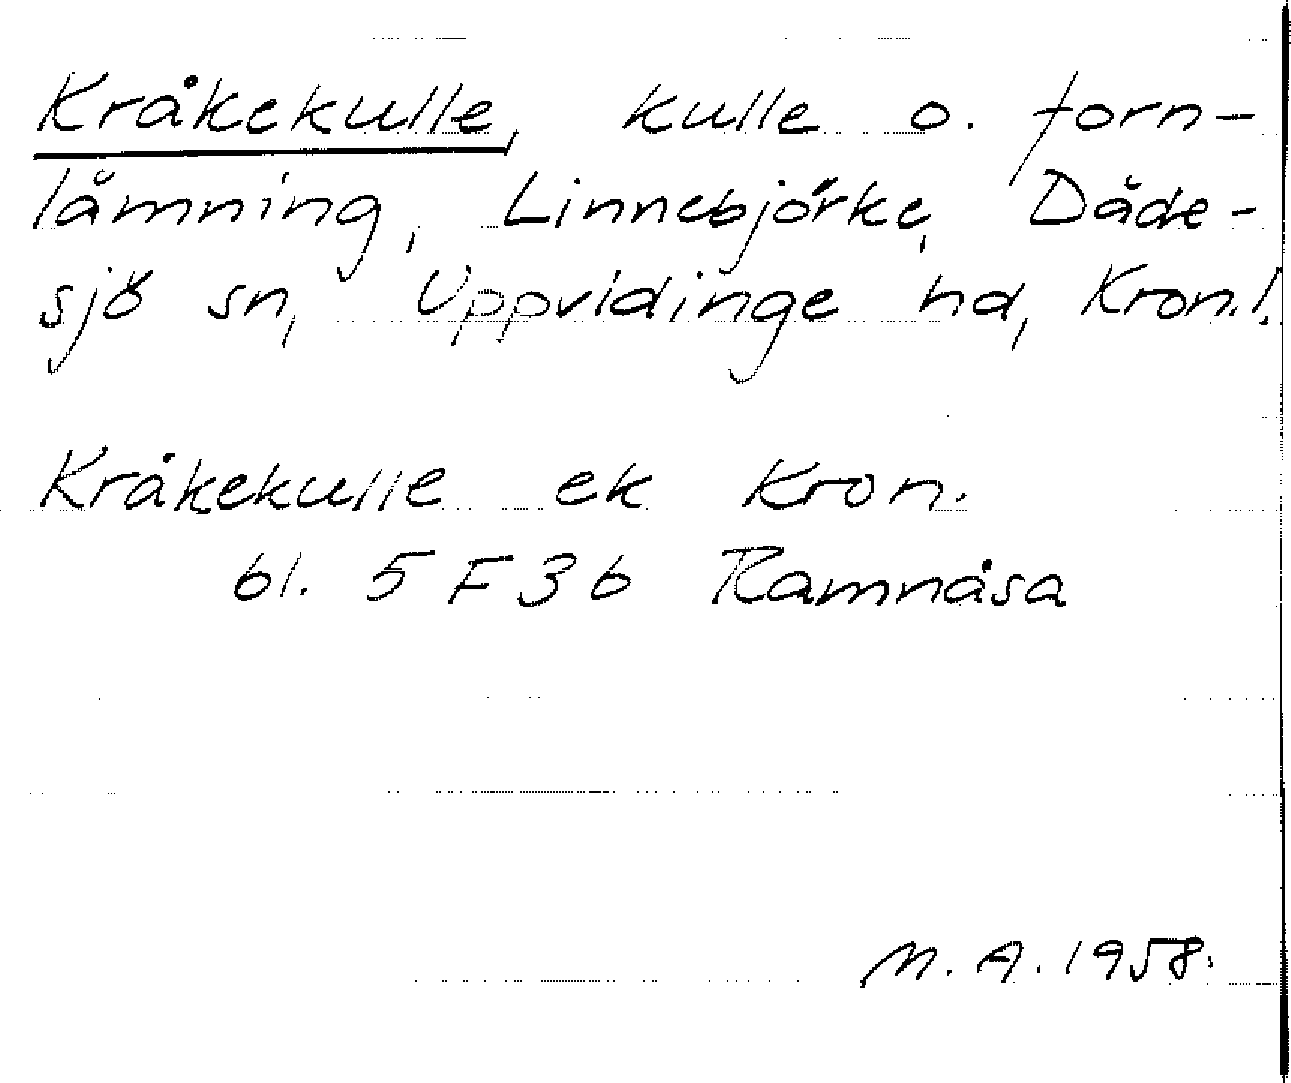 Kråkekulle, kulle o. forn-
lämning, Linnebjörke, Däde-
sjö sn, Uppvidinge hd, Kron.l.
Kråkekulle ek Kron.
bl. 5 F 3 b Ramnåsa
M. A. 1958.